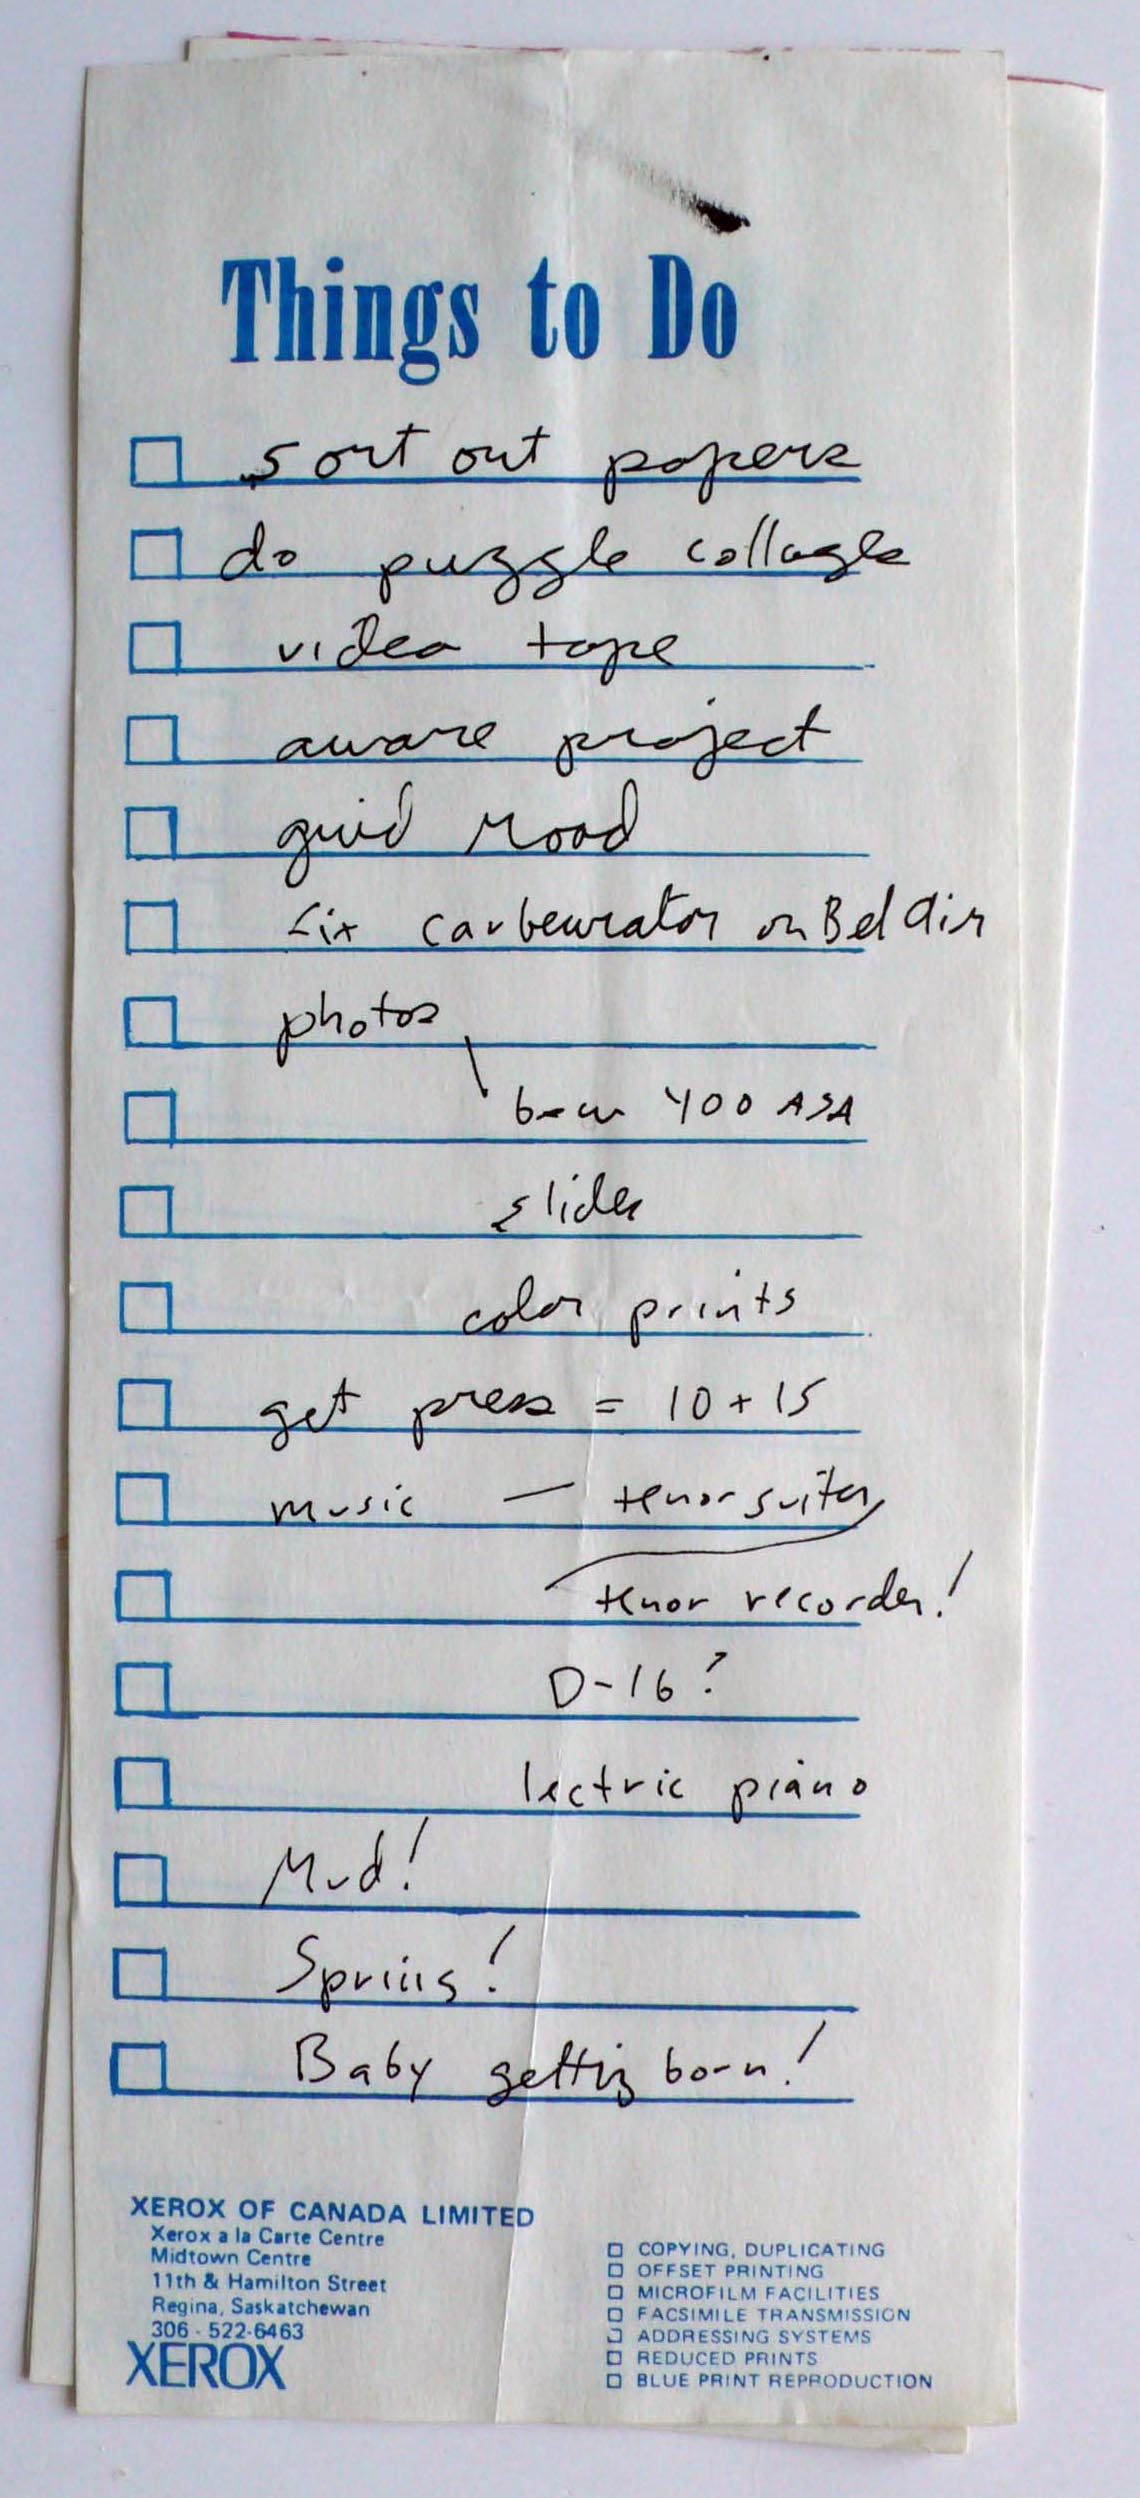 Things to Do
sort out papers
do puzzle collage
video tape
aware project
mood
fix carbeurator on Bel Air
photos
b&w 400 ASA
slides
color prints
get press = 10 + 15
music — tenor guitar
tenor recorder!
D-16?
lectric piano
Mud!
Spring!
Baby getting born!
XEROX OF CANADA LIMITED
Xerox a la Carte Centre
Midtown Centre
11th & Hamilton Street
Regina, Saskatchewan
306 - 522-6463
XEROX
COPYING, DUPLICATING
OFFSET PRINTING
MICROFILM FACILITIES
FACSIMILE TRANSMISSION
ADDRESSING SYSTEMS
REDUCED PRINTS
BLUE PRINT REPRODUCTION